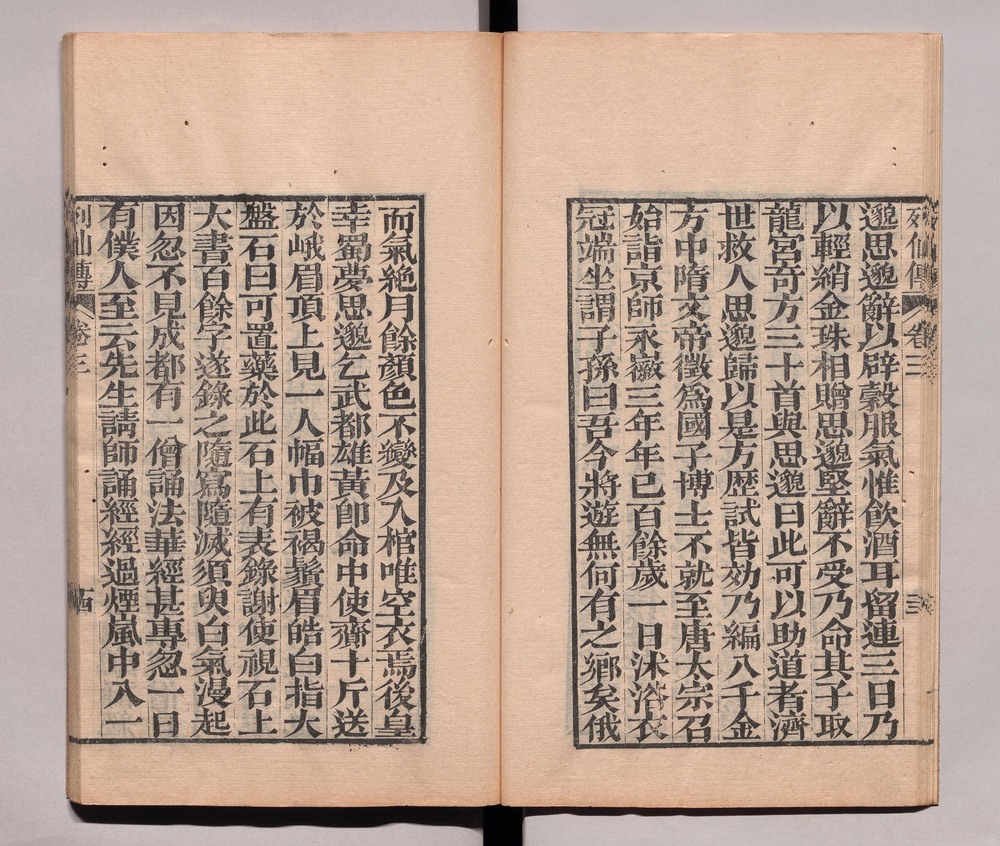 列仙傳 卷三
邈思邈辭以辟穀服氣惟飲酒耳留連三日乃
以輕綃金珠相贈思邈堅辭不受乃命其子取
龍宮奇方三十首與思邈曰此可以助道者濟
世救人思邈歸以是方歷試皆効乃編入千金
方中隋文帝徵為國子博士不就至唐太宗召
始詣京師永徽三年年已百餘歲一日沐浴衣
冠端坐謂子孫曰吾今將遊無何有之鄉矣俄
而氣絕月餘顏色不變及入棺唯空衣焉後皇
幸蜀夢思邈乞武都雄黃即命中使齎十斤送
於峨眉頂上見一人幅巾被褐鬚眉皓白指大
盤石曰可置藥於此石上有表錄謝使視石上
大書百餘字遂錄之隨寫隨滅須臾白氣漫起
因忽不見成都有一僧誦法華經甚專忽一日
有僕人至云先生請師誦經經過煙嵐中入一
列仙傳 卷三